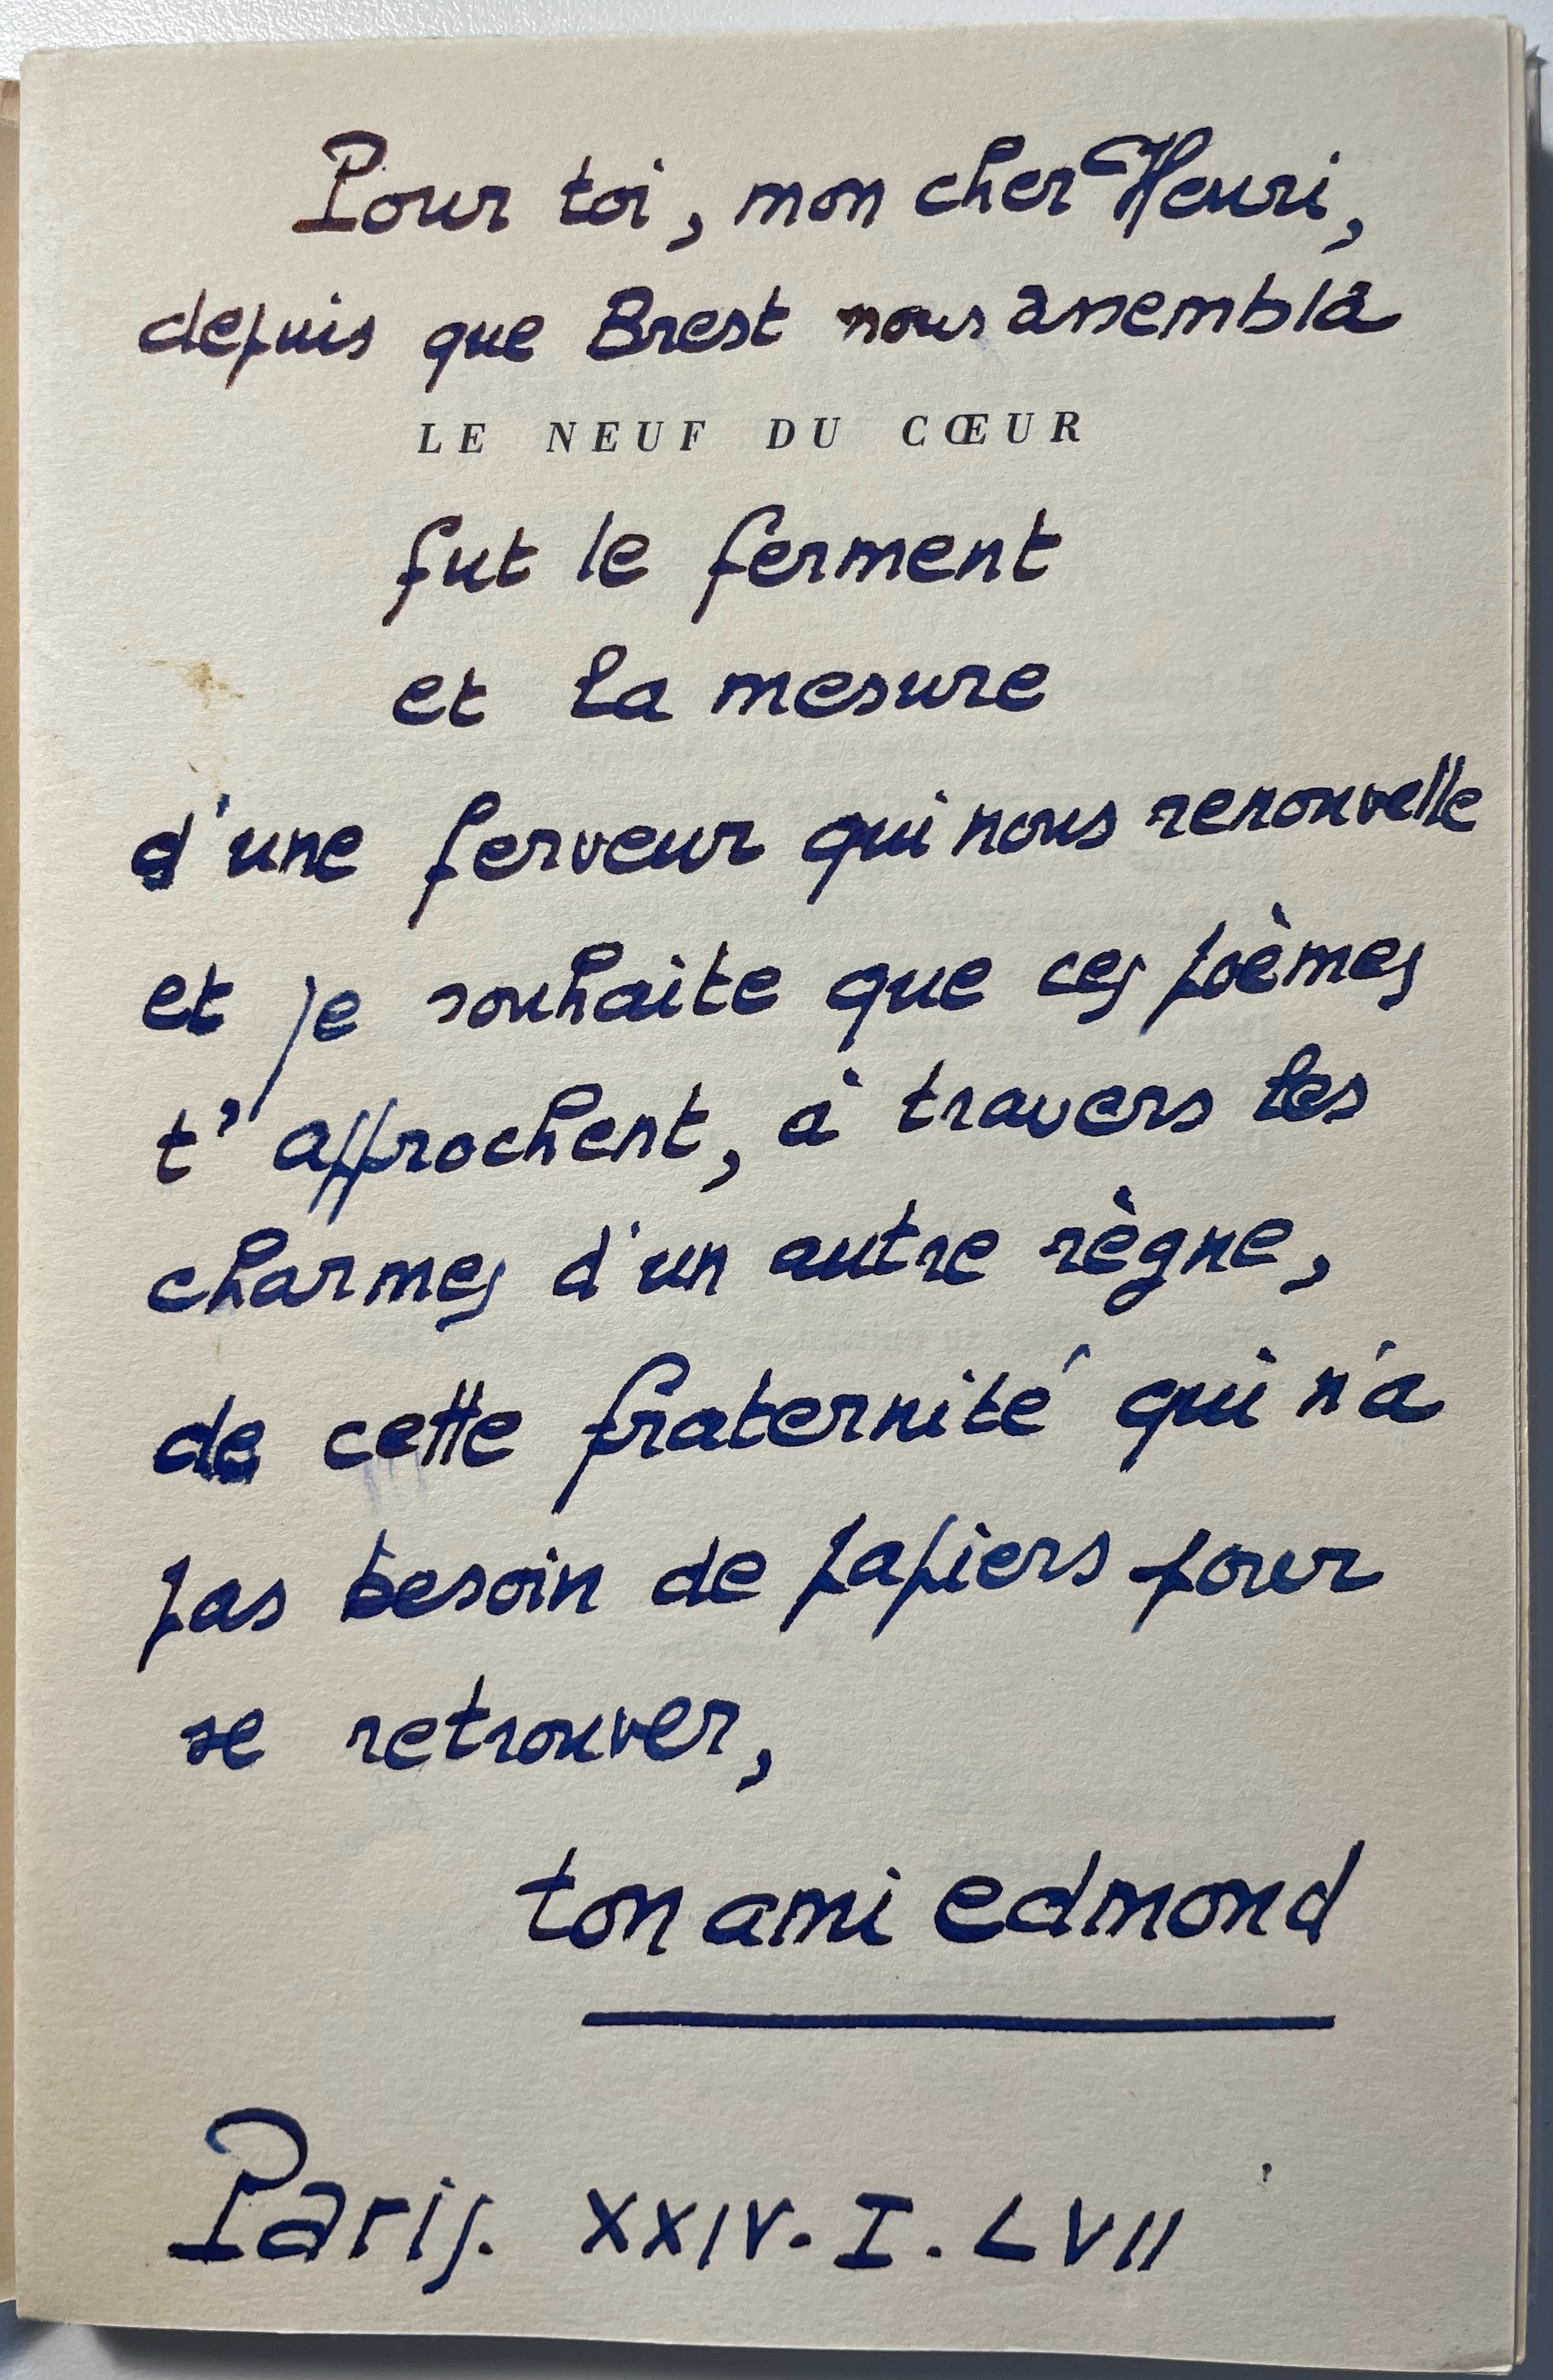 Pour toi, mon cher Henri,
depuis que Brest nous assembla
LE NEUF DU CŒUR
fut le ferment
et la mesure
d'une ferveur qui nous renouvelle
et je souhaite que ces poèmes
t'approchent, à travers les
charmes d'un autre règne,
de cette fraternité qui n'a
pas besoin de papiers pour
se retrouver,
ton ami edmond
Paris. XXIV. I. LVII